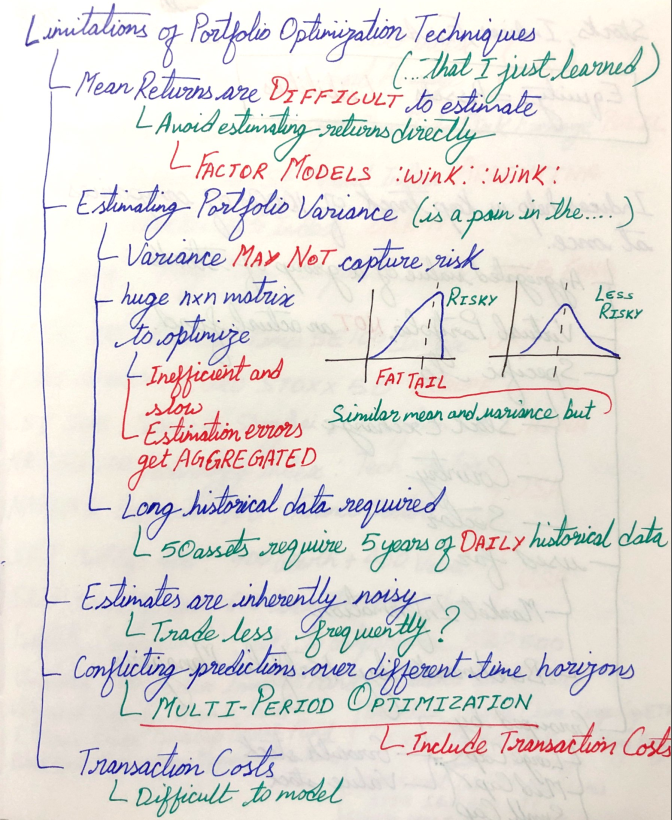 Limitations of Portfolio Optimization Techniques
(...that I just learned)
Mean Returns are DIFFICULT to estimate
Avoid estimating returns directly
FACTOR MODELS :wink: :wink:
Estimating Portfolio Variance (is a pain in the....)
Variance MAY NOT capture risk
huge nxn matrix
to optimize
RISKY
LESS
RISKY
FAT TAIL
Similar mean and variance but
Inefficient and
slow
Estimation errors
get AGGREGATED
Long historical data required
50 assets require 5 years of DAILY historical data
Estimates are inherently noisy
Trade less frequently?
Conflicting predictions over different time horizons
MULTI-PERIOD OPTIMIZATION
Include Transaction Costs
Transaction Costs
Difficult to model